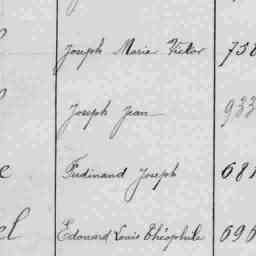 Joseph Marie Victor 758
Joseph Jean 933
e Ferdinand Joseph 681
el Edouard Louis Théophile 696